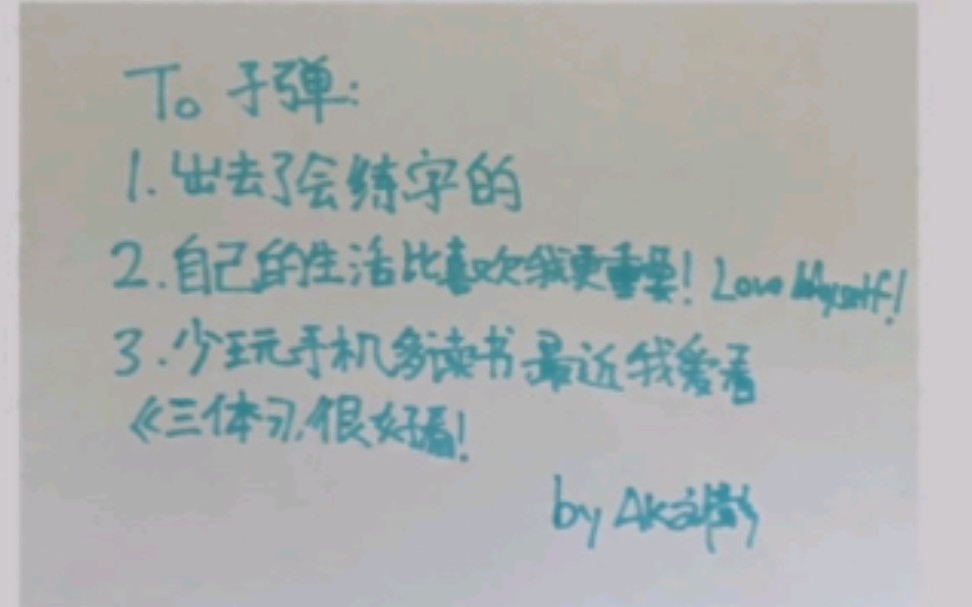 To 子弹:
1.出去了会练字的
2.自己的生活比喜欢我更重要! Love Myself!
3.少玩手机多读书最近我爱看
《三体》,很好看!
by AK刘彰